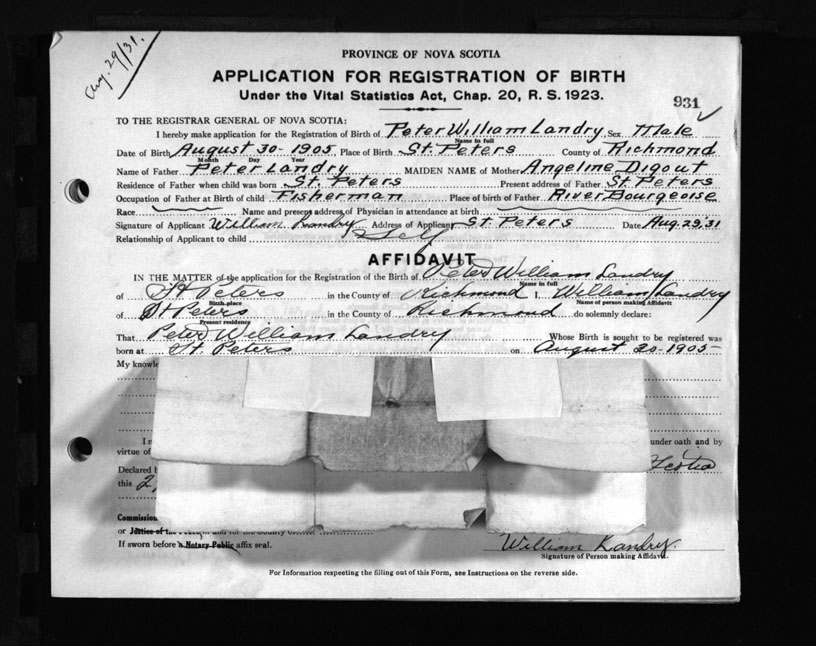 Aug. 29/31.
PROVINCE OF NOVA SCOTIA
APPLICATION FOR REGISTRATION OF BIRTH
Under the Vital Statistics Act, Chap. 20, R. S. 1923.
931
TO THE REGISTRAR GENERAL OF NOVA SCOTIA:
I hereby make application for the Registration of Birth of Peter William Landry Sex Male
Name in full
Date of Birth August 30 - 1905. Place of Birth St. Peters County of Richmond
Month Day Year
Name of Father Peter Landry MAIDEN NAME of Mother Angeline Digout
Residence of Father when child was born St. Peters Present address of Father St Peters
Occupation of Father at Birth of child Fisherman Place of birth of Father River Bourgeoise
Race Name and present address of Physician in attendance at birth
Signature of Applicant William Landry Address of Applicant St Peters Date Aug. 29' 31
Relationship of Applicant to child Self
AFFIDAVIT
IN THE MATTER of the application for the Registration of the Birth of Peter William Landry
Name in full
of St Peters in the County of Richmond I, William Landry
Birth-place Name of person making Affidavit
of St Peters in the County of Richmond do solemnly declare:
Present residence
That Peter William Landry Whose Birth is sought to be registered was
born at St. Peters on August 30 - 1905 -
My knowle
I m under oath and by
virtue of Scotia
Declared b
this 2
Commission
or Justice of the and for the County of
If sworn before a Notary Public affix seal.
William Landry.
Signature of Person making Affidavit.
For Information respecting the filling out of this Form, see Instructions on the reverse side.